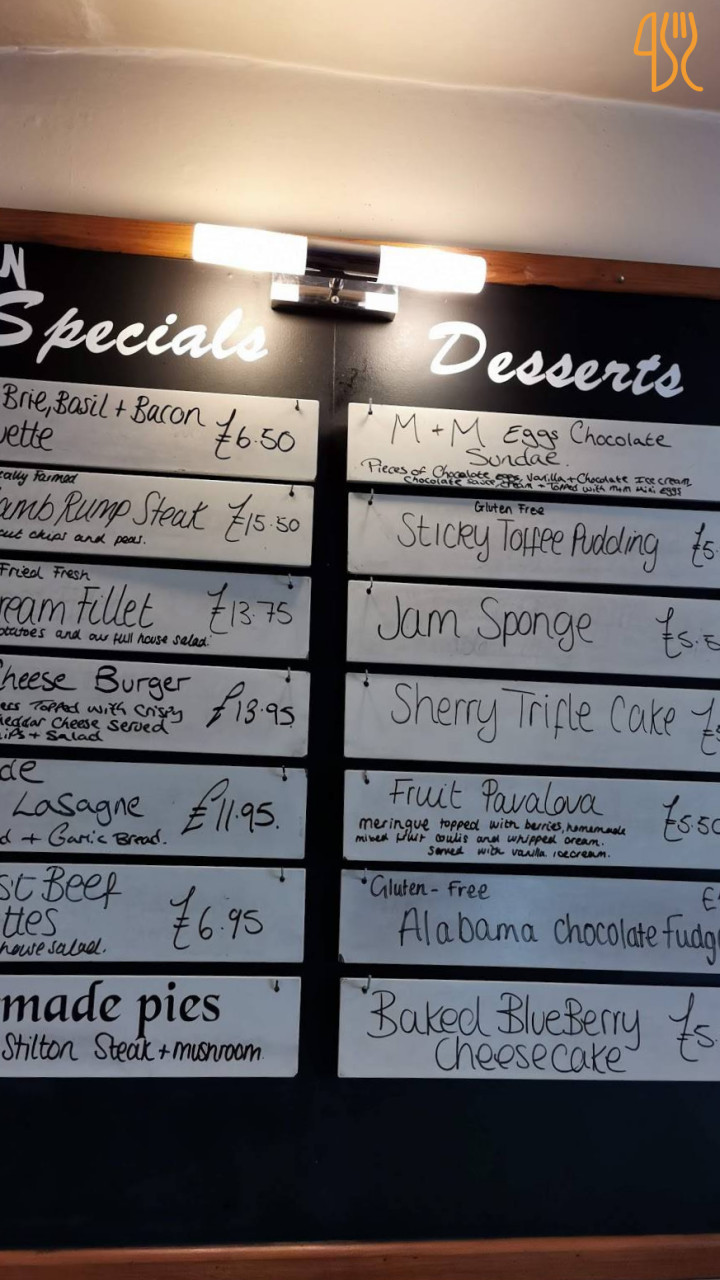 N
Specials
Brie, Basil + Bacon
ette £6.50
cally Farmed
amb Rump Steak £15.50
cut chips and peas.
Fried Fresh
ream Fillet £13.75
otatoes and our full house salad.
heese Burger £13.95
ers Topped with Crispy
heddar Cheese Served
hips + Salad
de
Lasagne £11.95.
d + Garlic Bread.
st Beef
ttes £6.95
house salad.
made pies
Stilton Steak + mushroom
Desserts
M + M Eggs Chocolate
Sundae.
Pieces of Chocolate eggs, Vanilla + Chocolate Ice cream
Chocolate sauce, cream + Topped with m+m Mini Eggs
Gluten Free
Sticky Toffee Pudding £5.
Jam Sponge £5.5
Sherry Trifle Cake £5
Fruit Pavalova £5.50
meringue topped with berries, homemade
mixed fruit coulis and whipped cream.
served with vanilla icecream.
Gluten-Free £
Alabama chocolate fudg
Baked BlueBerry £5.
Cheesecake